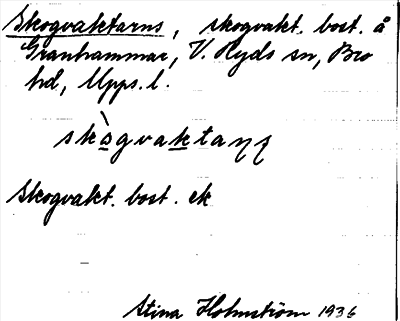 Skogvaktarns, skogvakt. bost. å
Granhammar, V. Ryds sn, Bro
hd, Upps. l.
skògvaktaɳʂ
Skogvakt. bost. ek
Stina Holmström 1936